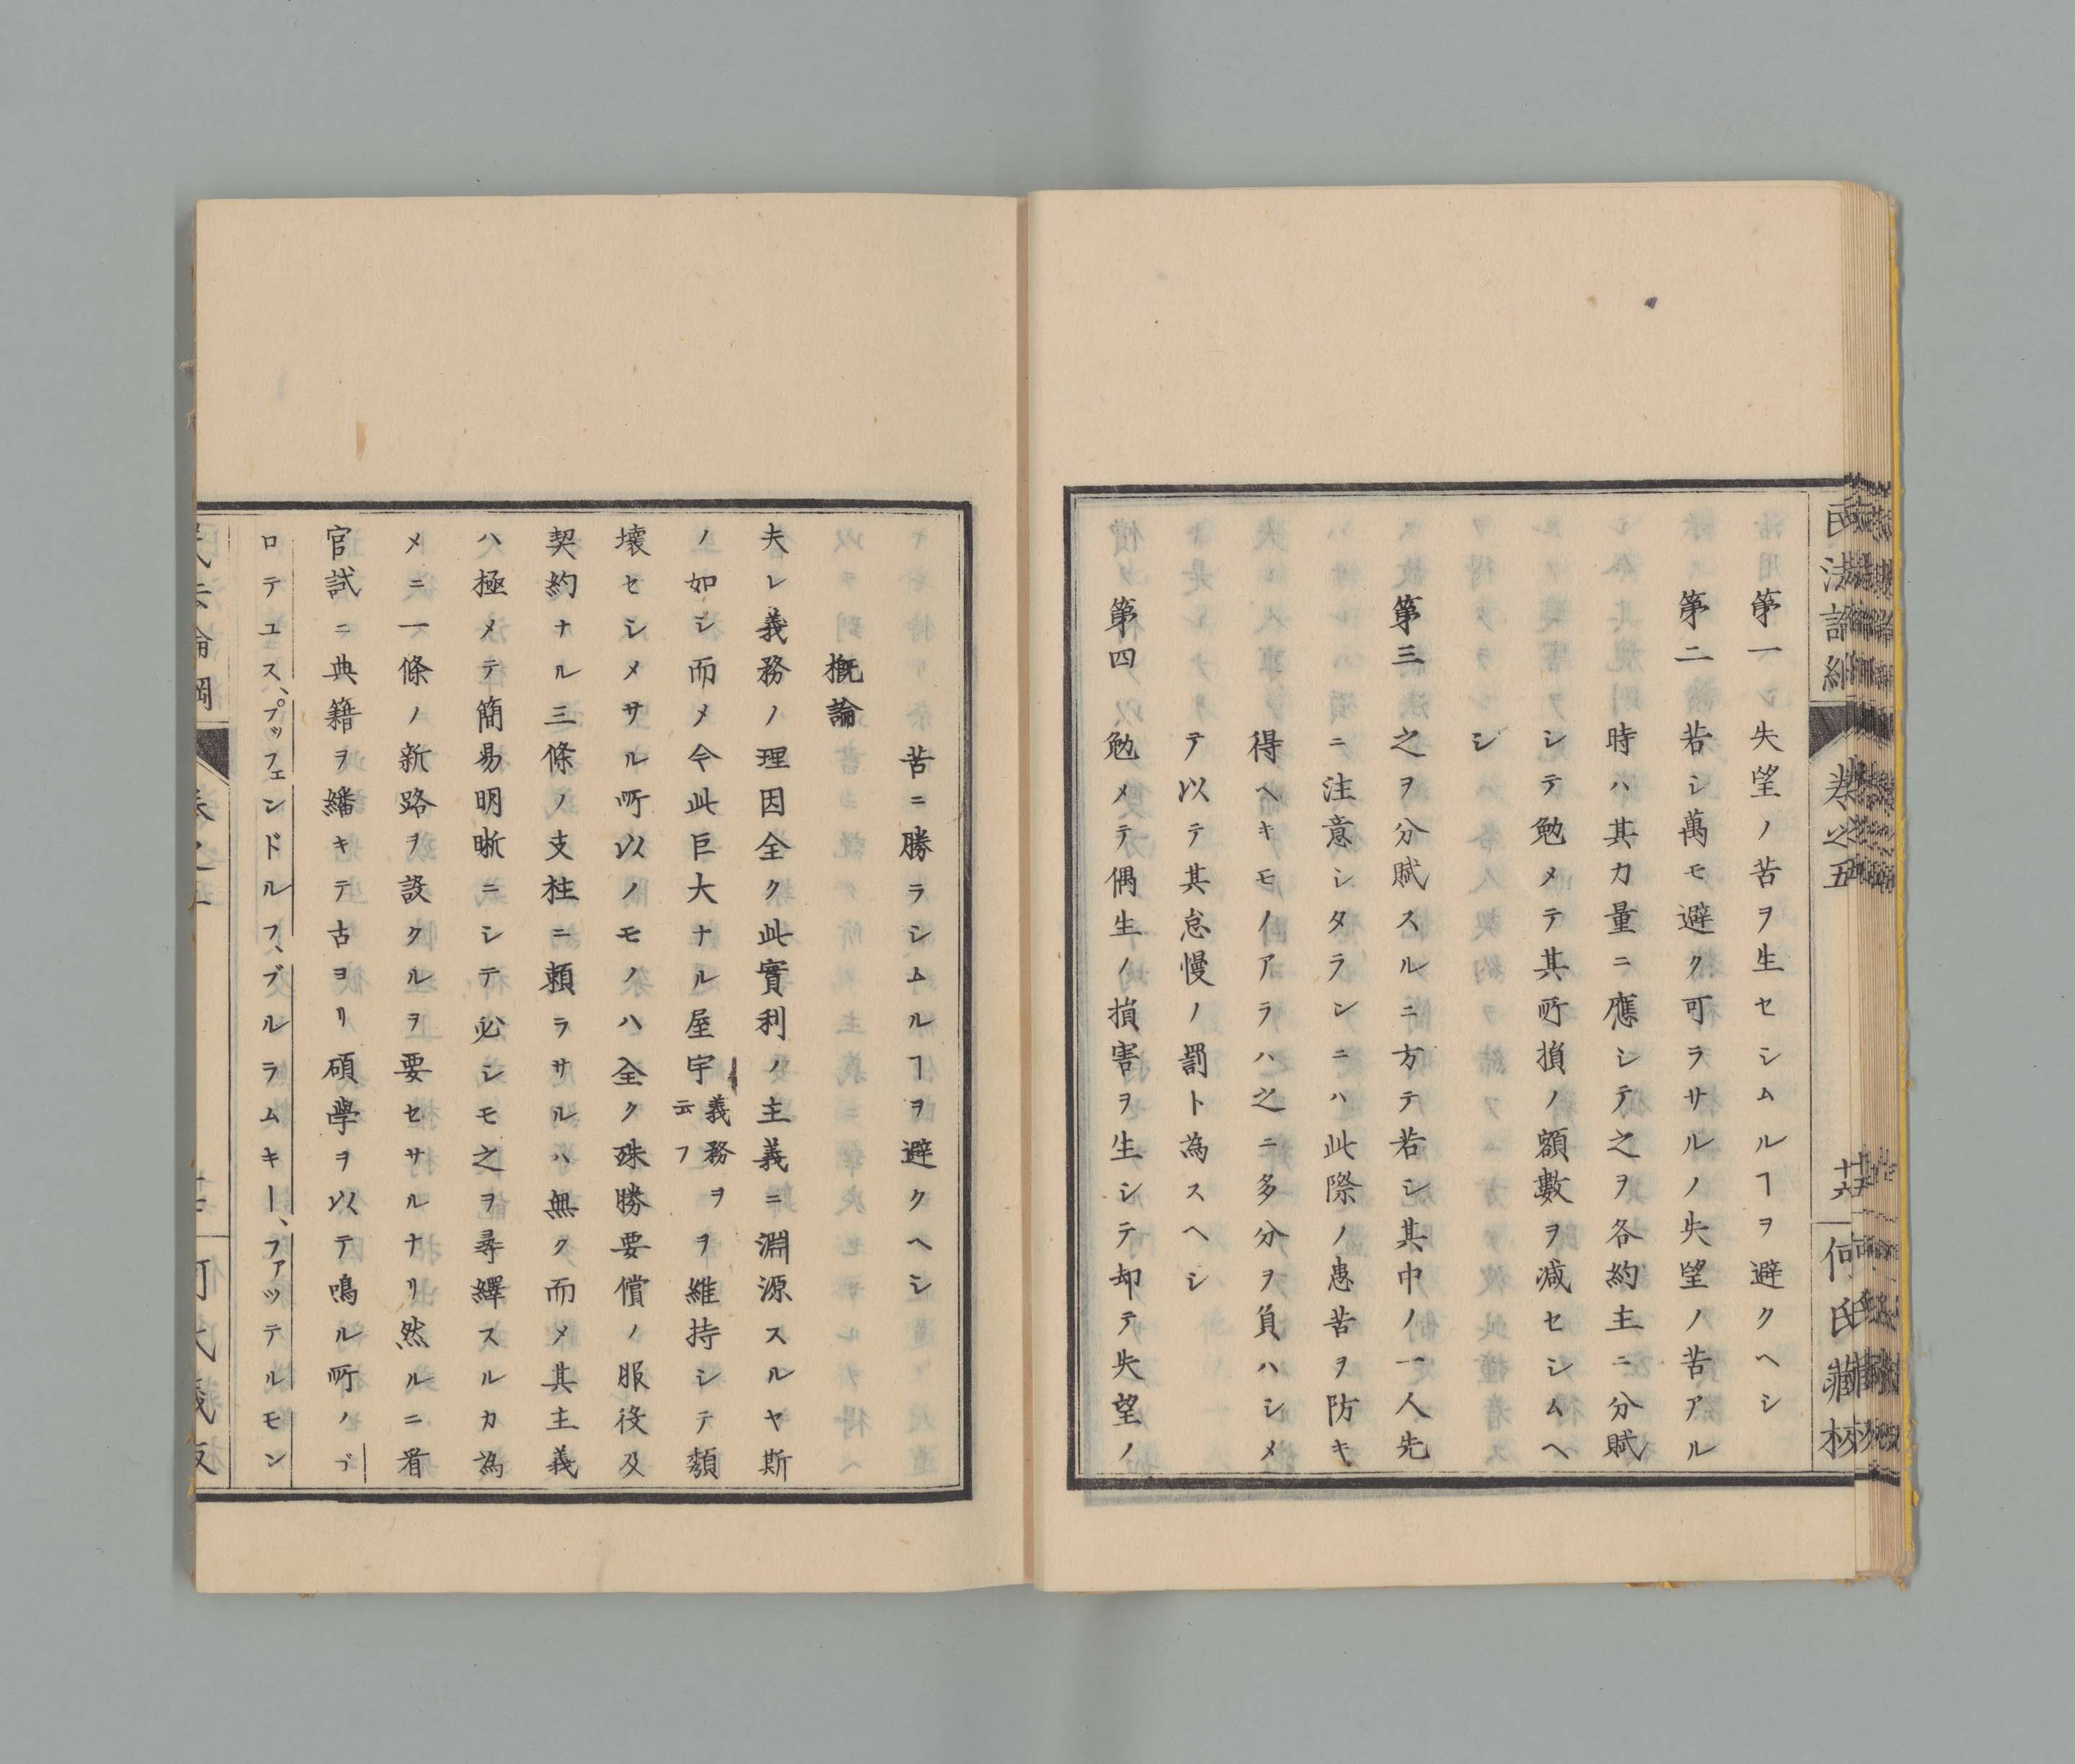 民法論綱
卷之五
十六
何氏藏板
第一 失望ノ苦ヲ生セシムルヿヲ避クヘシ
第二 若シ萬モ避ク可ラサルノ失望ノ苦アル
時ハ其力量ニ應シテ之ヲ各約主ニ分賦
シテ勉メテ其所損ノ額數ヲ減セシムヘ
シ
第三 之ヲ分賦スルニ方テ若シ其中ノ一人先
ニ注意シタランニハ此際ノ患苦ヲ防キ
得ヘキモノアラハ之ニ多分ヲ負ハシメ
テ以テ其怠慢ノ罰ト為スヘシ
第四 勉メテ偶生ノ損害ヲ生シテ却テ失望ノ
苦ニ勝ラシムルヿヲ避クヘシ
概論
夫レ義務ノ理因全ク此實利ノ主義ニ淵源スルヤ斯
ノ如シ而メ今此巨大ナル屋宇義務ヲ云フヲ維持シテ頽
壞セシメサル所以ノモノハ全ク殊勝要償ノ服役及
契約ナル三條ノ支柱ニ頼ラサルハ無ク而メ其主義
ハ極メテ簡易明晰ニシテ必シモ之ヲ尋繹スルカ為
メニ一條ノ新路ヲ設クルヲ要セサルナリ然ルニ看
官試ニ典籍ヲ繙キテ古ヨリ碩學ヲ以テ鳴ル所ノブ
ロテユス、プッフェンドルフ、ブルラムキー、ファッテルモン
民法論綱
卷之五
何氏藏板